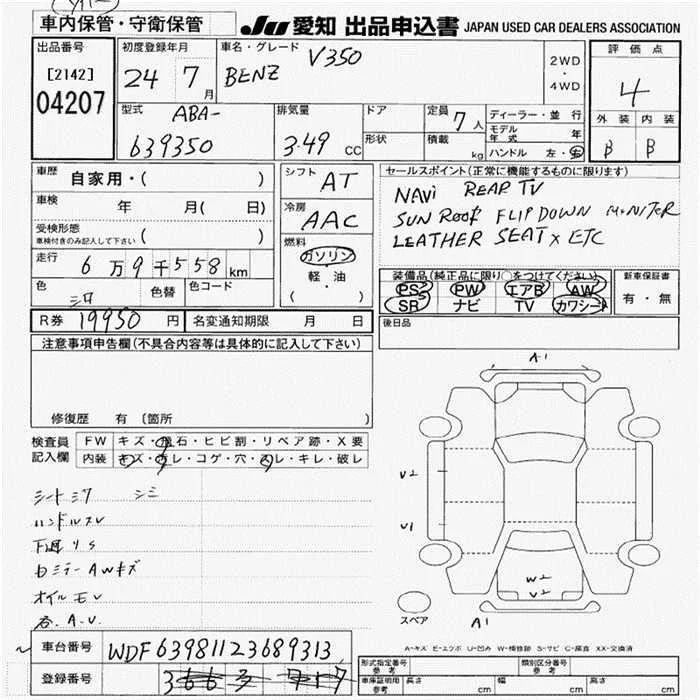 車内保管・守衛保管
JU 愛知 出品申込書 JAPAN USED CAR DEALERS ASSOCIATION
出品番号 初度登録年月 車名・グレード 評価点
[2142] 24 7月 BENZ V350 2WD・4WD 4
04207
型式 排気量 ドア 定員 ディーラー・並行 外装 内装
ABA- 7人 モデル年式 年
639350 3.49 CC 形状 積載 kg ハンドル 左・右 B B
車歴 自家用・( ) シフト AT セールスポイント(正常に機能するものに限ります)
車検 年 月( 日) 冷房 AAC NAVi REAR TV
受検形態 ( ) SUN ROOF FLIP DOWN MONITER
車検付きのみ記入して下さい LEATHER SEAT x ETC
走行 6万9千558km 燃料 ガソリン
軽・油
( )
色 シロ 色替 色コード
装備品(純正品に限り○をつけてください) 新車保証書
PS PW エアB AW 有・無
SR ナビ TV カワシート
R券 19950円 名変通知期限 月 日 後日品
注意事項申告欄(不具合内容等は具体的に記入して下さい)
修復歴 有 〔箇所 〕
検査員記入欄 FW キズ・飛石・ヒビ割・リペア跡・X要
内装 キズ・汚レ・コゲ・穴・スレ・キレ・破レ
シートシワ シミ
ハンドルスレ
下廻りS
AWキズ
オイルモレ
A.U.
A1
V2
V1
W2
V2
A1
スペア
A-キズ E-エクボ U-凹み W-補修跡 S-サビ C-腐食 XX-交換済
車台番号 WDF63981123689313
登録番号
形式指定番号 参考 類別区分番号 参考
車庫証明用 参考 長さ cm 幅 cm 高さ cm